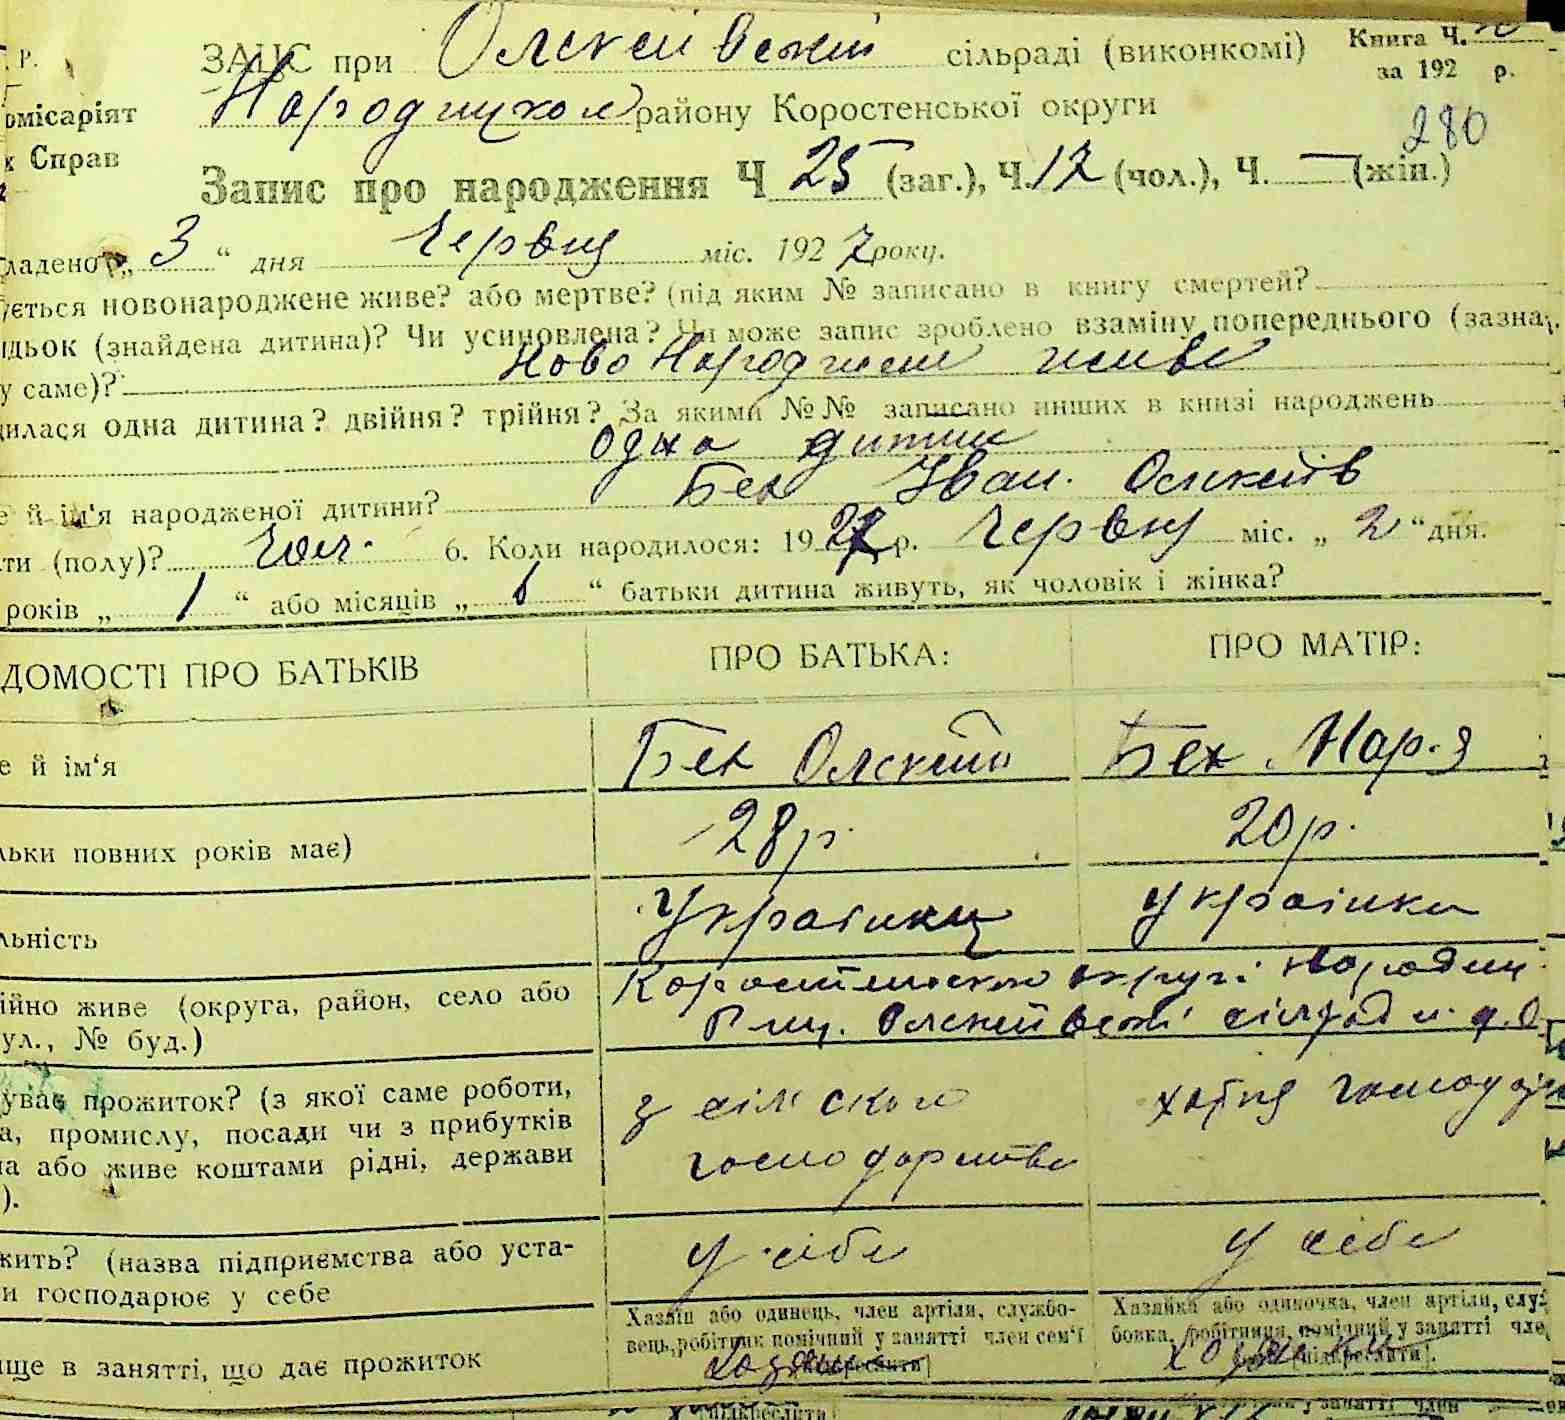 Р.
ЗАЦС при Олексіївській сільраді (виконкомі) Книга Ч.
за 192 р.
омісаріят Народицького району Коростенської округи
280
х Справ
Запис про народження Ч 25 (заг.), Ч. 17 (чол.), Ч. — (жін.)
ладено „ 3 “ дня Червця міс. 1927 року.
ується новонароджене живе? або мертве? (під яким № записано в книгу смертей?
ідьок (знайдена дитина)? Чи усиновлена? Чи може запис зроблено взаміну попереднього (зазна-
у саме)? Ново Народжене живе
дилася одна дитина? двійня? трійня? За якими №№ записано инших в книзі народжень
одна дитин
е й ім'я народженої дитини? Бех Іван Олексіїв
ти (полу)? Чол. 6. Коли народилося: 1927 р. Червця міс. „ 2 “ дня.
років „ 1 “ або місяців „ “ батьки дитина живуть, як чоловік і жінка?
ДОМОСТІ ПРО БАТЬКІВ ПРО БАТЬКА: ПРО МАТІР:
е й ім‘я Бех Олексій Бех Мар.я
льки повних років має) 28 р. 20 р.
льність Українец Українка
ійно живе (округа, район, село або Коростенської округі Народиц
ул., № буд.) Олексіївскі сілрад
ував прожиток? (з якої саме роботи, з сілского хатня господар
а, промислу, посади чи з прибутків
на або живе коштами рідні, держави господарства
).
жить? (назва підприємства або уста- у сібе у себе
и господарює у себе
Хазяїн або одинець, член артіли, службо- Хазяйка або одиночка, член артіли, служ
вець, робітник помічний у занятті член сем‘ї бовка, робітниця, помічний у занятті чле
ище в занятті, що дає прожиток хазяин [підкреслити] хозяйка [підкреслити].
[підкреслити] у занятті член